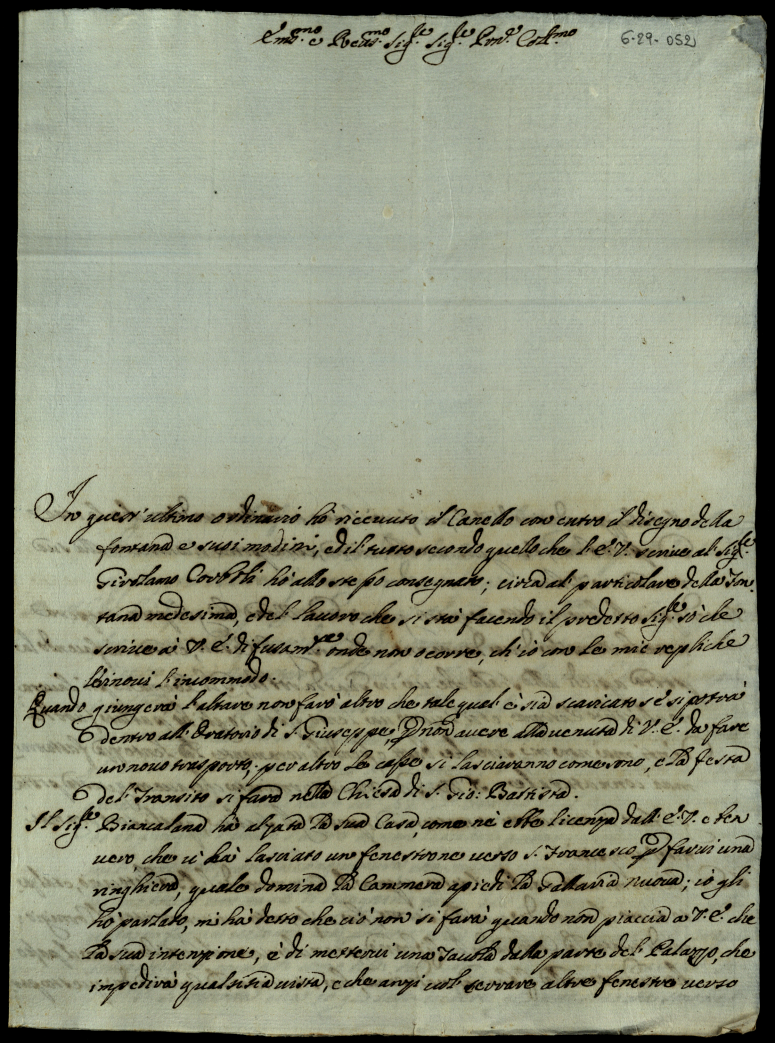 Em.mo e Reu.mo Sig.re Sig.re Pron.e Coll.mo
6-29-052
In quest'ultimo ordinario hò riceuuto il Canello con entro il disegno della
fontana e suoi modini, ed il tutto secondo quello che l'E.V. scriue al Sig.re
Girolamo Corbelli hò allo stesso consegnato; circa al particolare della fon
tana medesima, e del lauoro che si stà facendo il predetto Sig.re sò che
scriue à V.E. difusam.te onde non ocorre, ch'io con le mie repliche
l'incommodo.
Quando giungerà l'altare non farò altro che tale qual'è sia scaricato se si potrà
dentro all'Oratorio di S. Giuseppe, p non auere alla uenuta di V.E. da fare
un nouo trasporto; per altro le casse si lasciaranno come sono, e la festa
del Transito si farà nella Chiesa di S. Gio: Battista.
Il Sig.re Biancalana hà alzata la sua Casa, come nè ebbe licenza dall'E.V. e ben
uero, che ui hà lasciato un fenestrone uerso S. Francesco p farui una
ringhiera, quale domina la Cammera apiedi la Gallaria nuoua; io gli
hò parlato, mi hà detto che ciò non si farà quando non piaccia a V.E. che
la sua intenzione, è di metterui una Tauola dalla parte del Palazzo, che
impedirà qualsisia uista, e che anzi uol serrare altre fenestre uerso